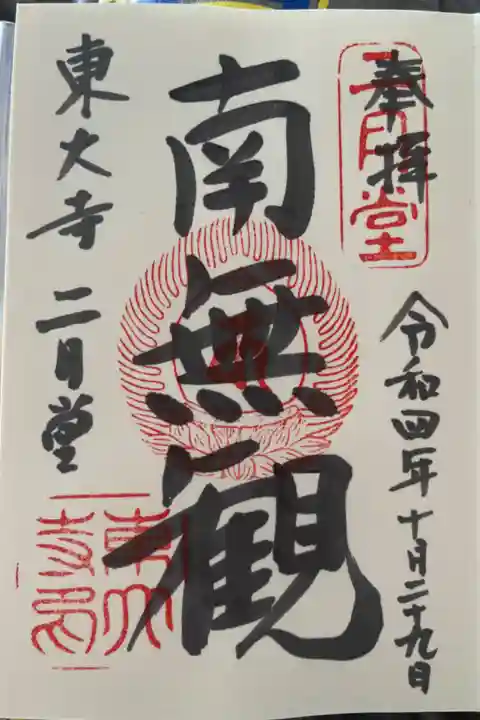 奉拝
二月堂
令和四年十月二十九日
南無観
東大寺 二月堂